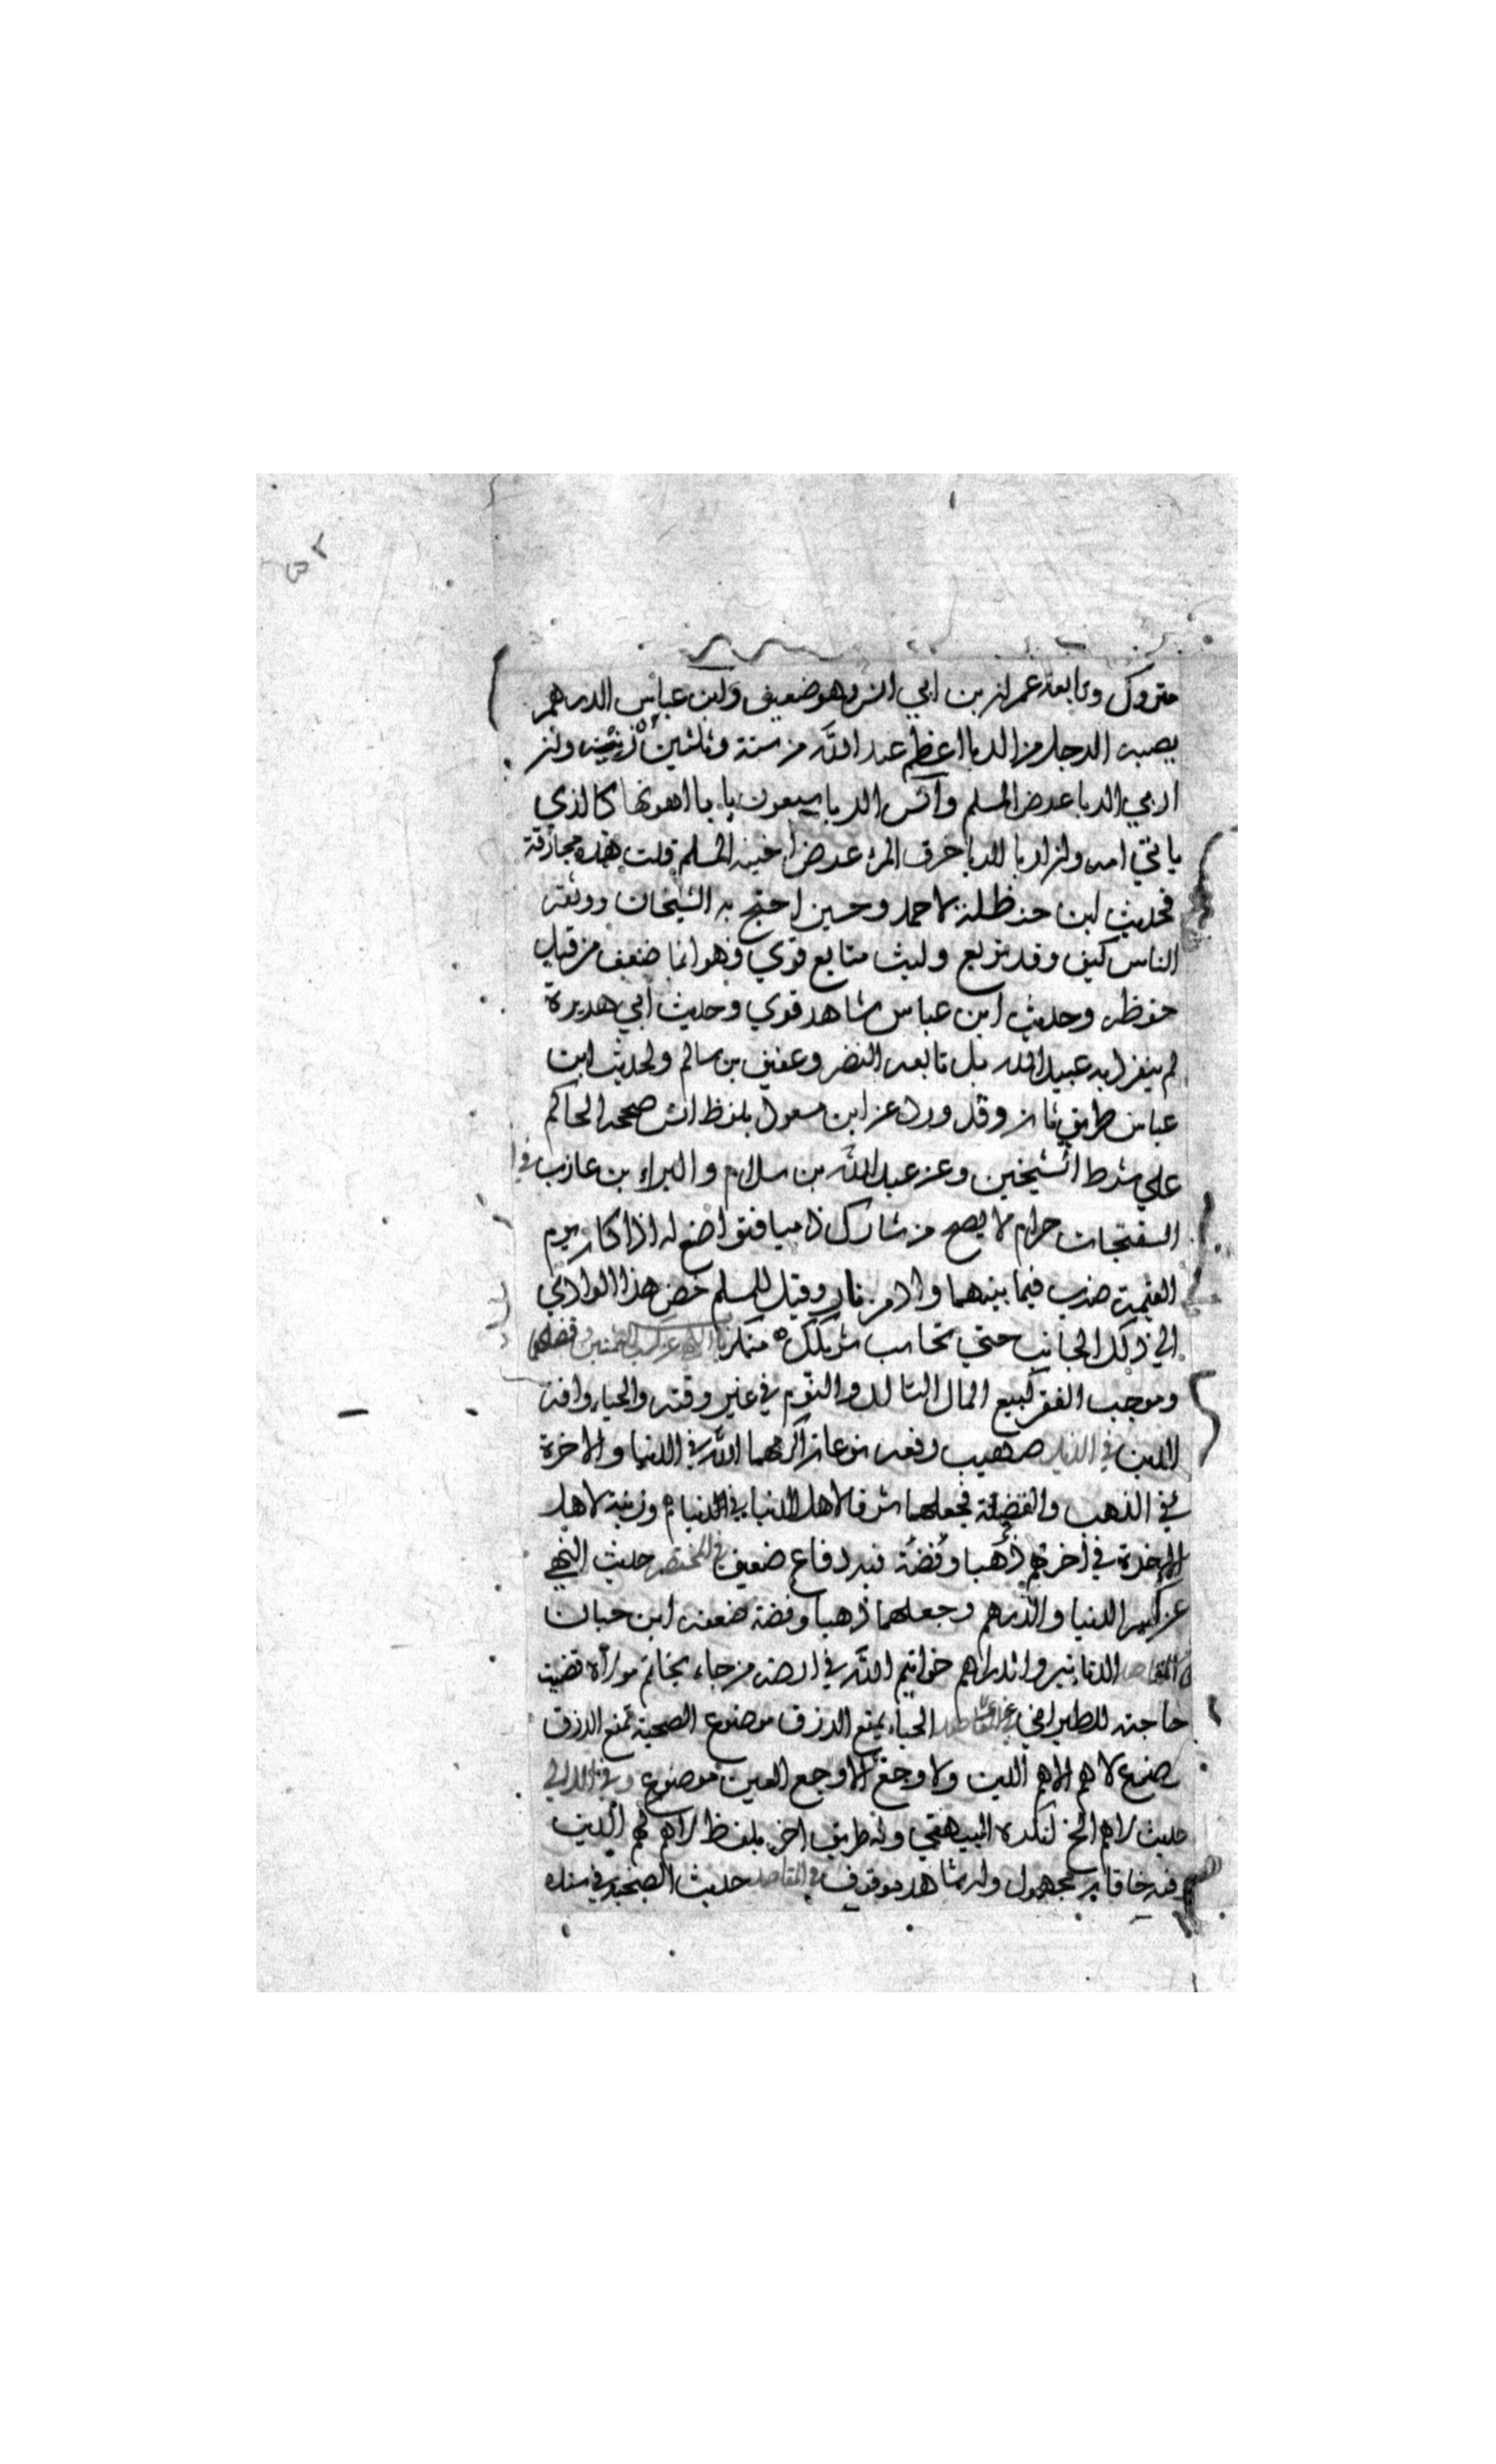 متروك وتابعه عمران بن ابي انس وهو ضعيف ولابن عباس الدرهم
يصيبه الرجل من الربا اعظم عند الله من ستة وثلثين زنية وان
اربي الربا عرض المسلم وآنس الربا سبعون بابا اهونها كالذي
ياتي امه وان اربا الربا خرق المرء عرض اخيه المسلم قلت هذه مجازفة
فحديث ابن حنظلة لاحمد وحسين احتج به الشيخان ووثقه
الناس كيف وقد توبع وليث متابع قوي وهو انما ضعف من قبل
حفظه وحديث ابن عباس شاهد قوي وحديث ابي هريرة
لم ينفرد به عبد الله بل تابعه النضر وعفيف بن سالم ولحديث ابن
عباس طريق ثان وقد ورد عن ابن مسعود بلفظ انس صححه الحاكم
علي شرط الشيخين وعن عبد الله بن سلام والبراء بن عازب في
السفتجات حرام لا يصح من شارك ذميا فتواضع له اذا كان يوم
القيمة ضرب فيما بينهما واد من نار وقيل للمسلم خض هذا الوادي
الي ذلك الجانب حتي تحاسب شريكك منكر باب في الثمنين وفضلهما
وموجب الفقر كبيع المال التالد والنوم في غير وقته والحياء وافة
الدين في الذيل صهيب رفعه نوعان اكرمهما الله في الدنيا والاخرة
في الذهب والفضة فجعلهما شرفا لاهل الدنيا في الدنيا وزينة لاهل
الاخرة في اخرتهم ذهبا وفضة فيه دفاع ضعيف في المختصر حديث النهي
عن كسر الدنيا والدرهم وجعلهما ذهبا وفضة ضعفه ابن حبان
في المقاصد الدنانير والدراهم خواتيم الله في ارضه من جاء بخاتم مولاه قضيت
حاجته للطبراني الحياء يمنع الرزق موضوع الصبحة تمنع الرزق
لا هم الا هم الدين ولا وجع الا وجع العين موضوع وفي اللالي
حديث لا هم الخ نكره البيهقي وله طريق اخر بلفظ لا هم لهم الدين
فيه خاقان مجهول وله شاهد موقوف في المقاصد حديث الصبحة في سنده